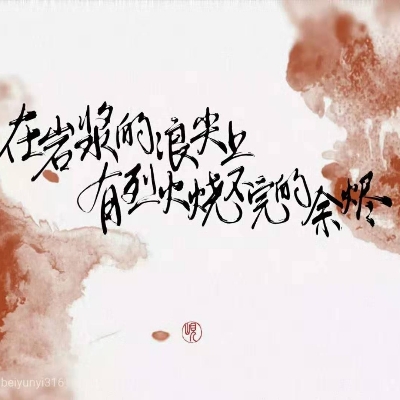 在岩浆的浪尖上
有烈火烧不完的余烬
beiyunyi316